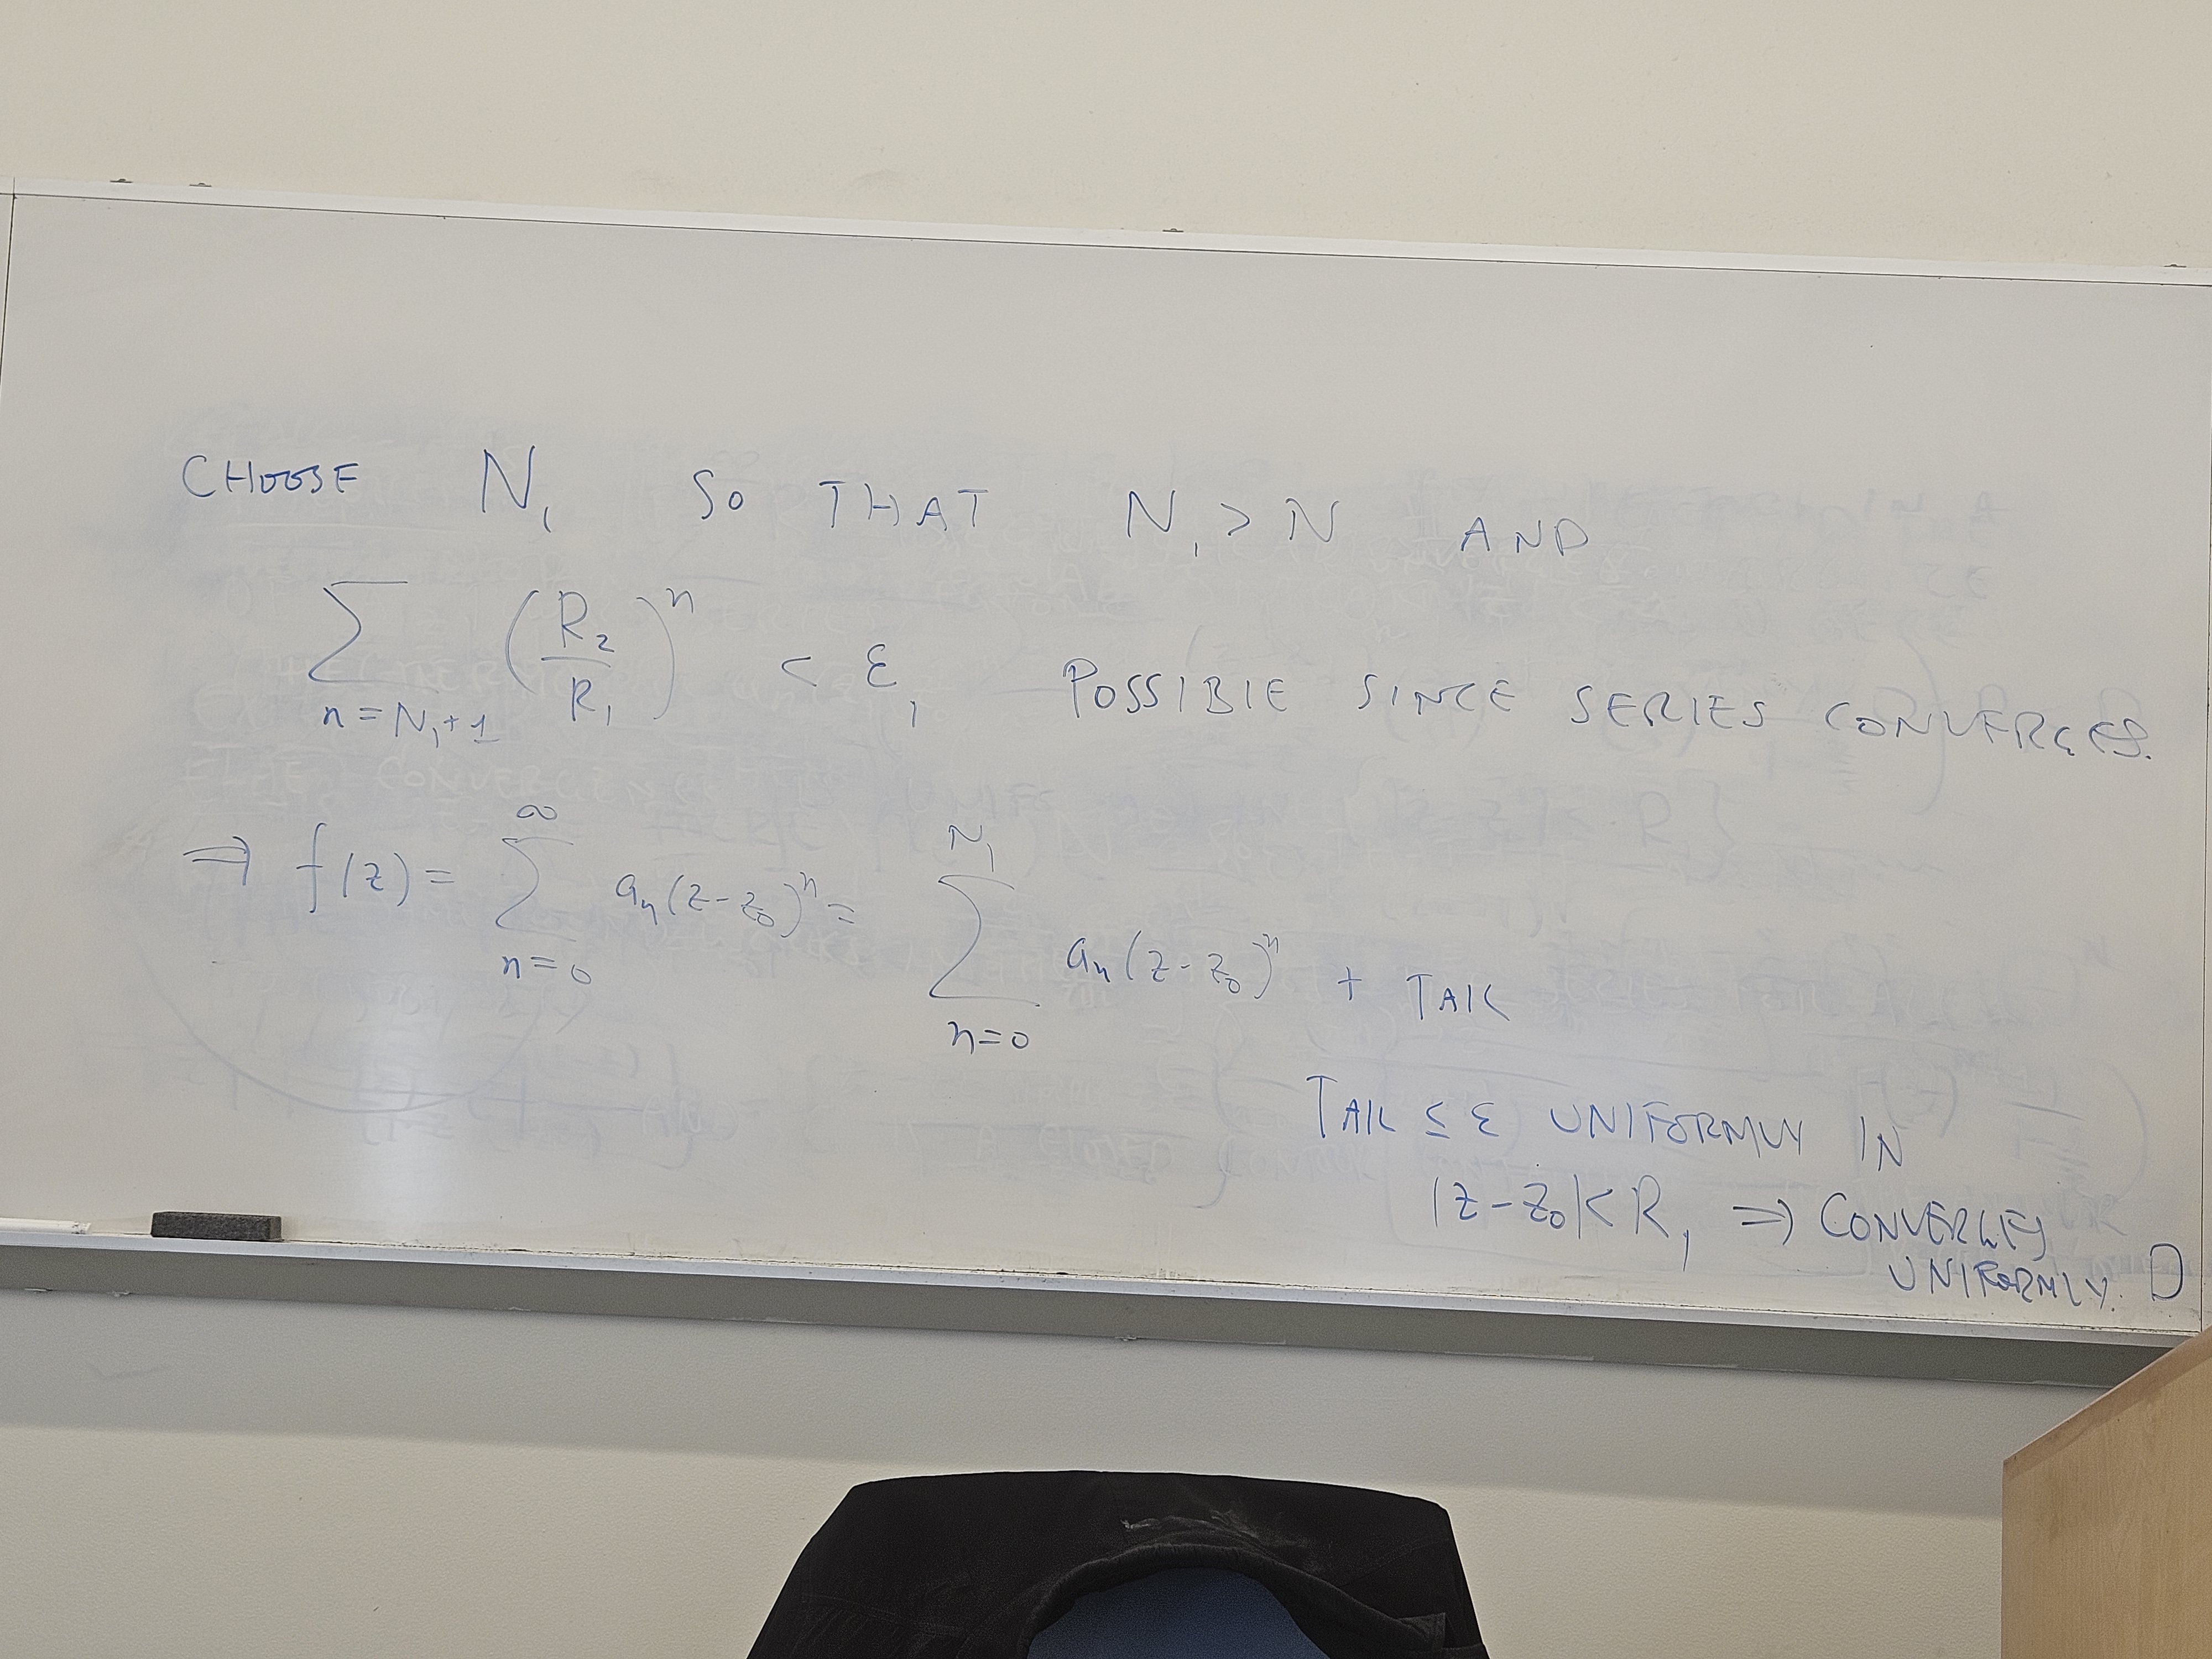 CHOOSE N₁ SO THAT N₁ > N AND
∑_{n=N₁+1} (R₂/R₁)ⁿ < ε, POSSIBLE SINCE SERIES CONVERGES.
⇒ f(z) = ∑_{n=0}^{∞} aₙ(z-z₀)ⁿ = ∑_{n=0}^{N₁} aₙ(z-z₀)ⁿ + TAIL
TAIL ≤ ε UNIFORMLY IN
|z-z₀| < R₁ ⇒ CONVERGES
UNIFORMLY. □